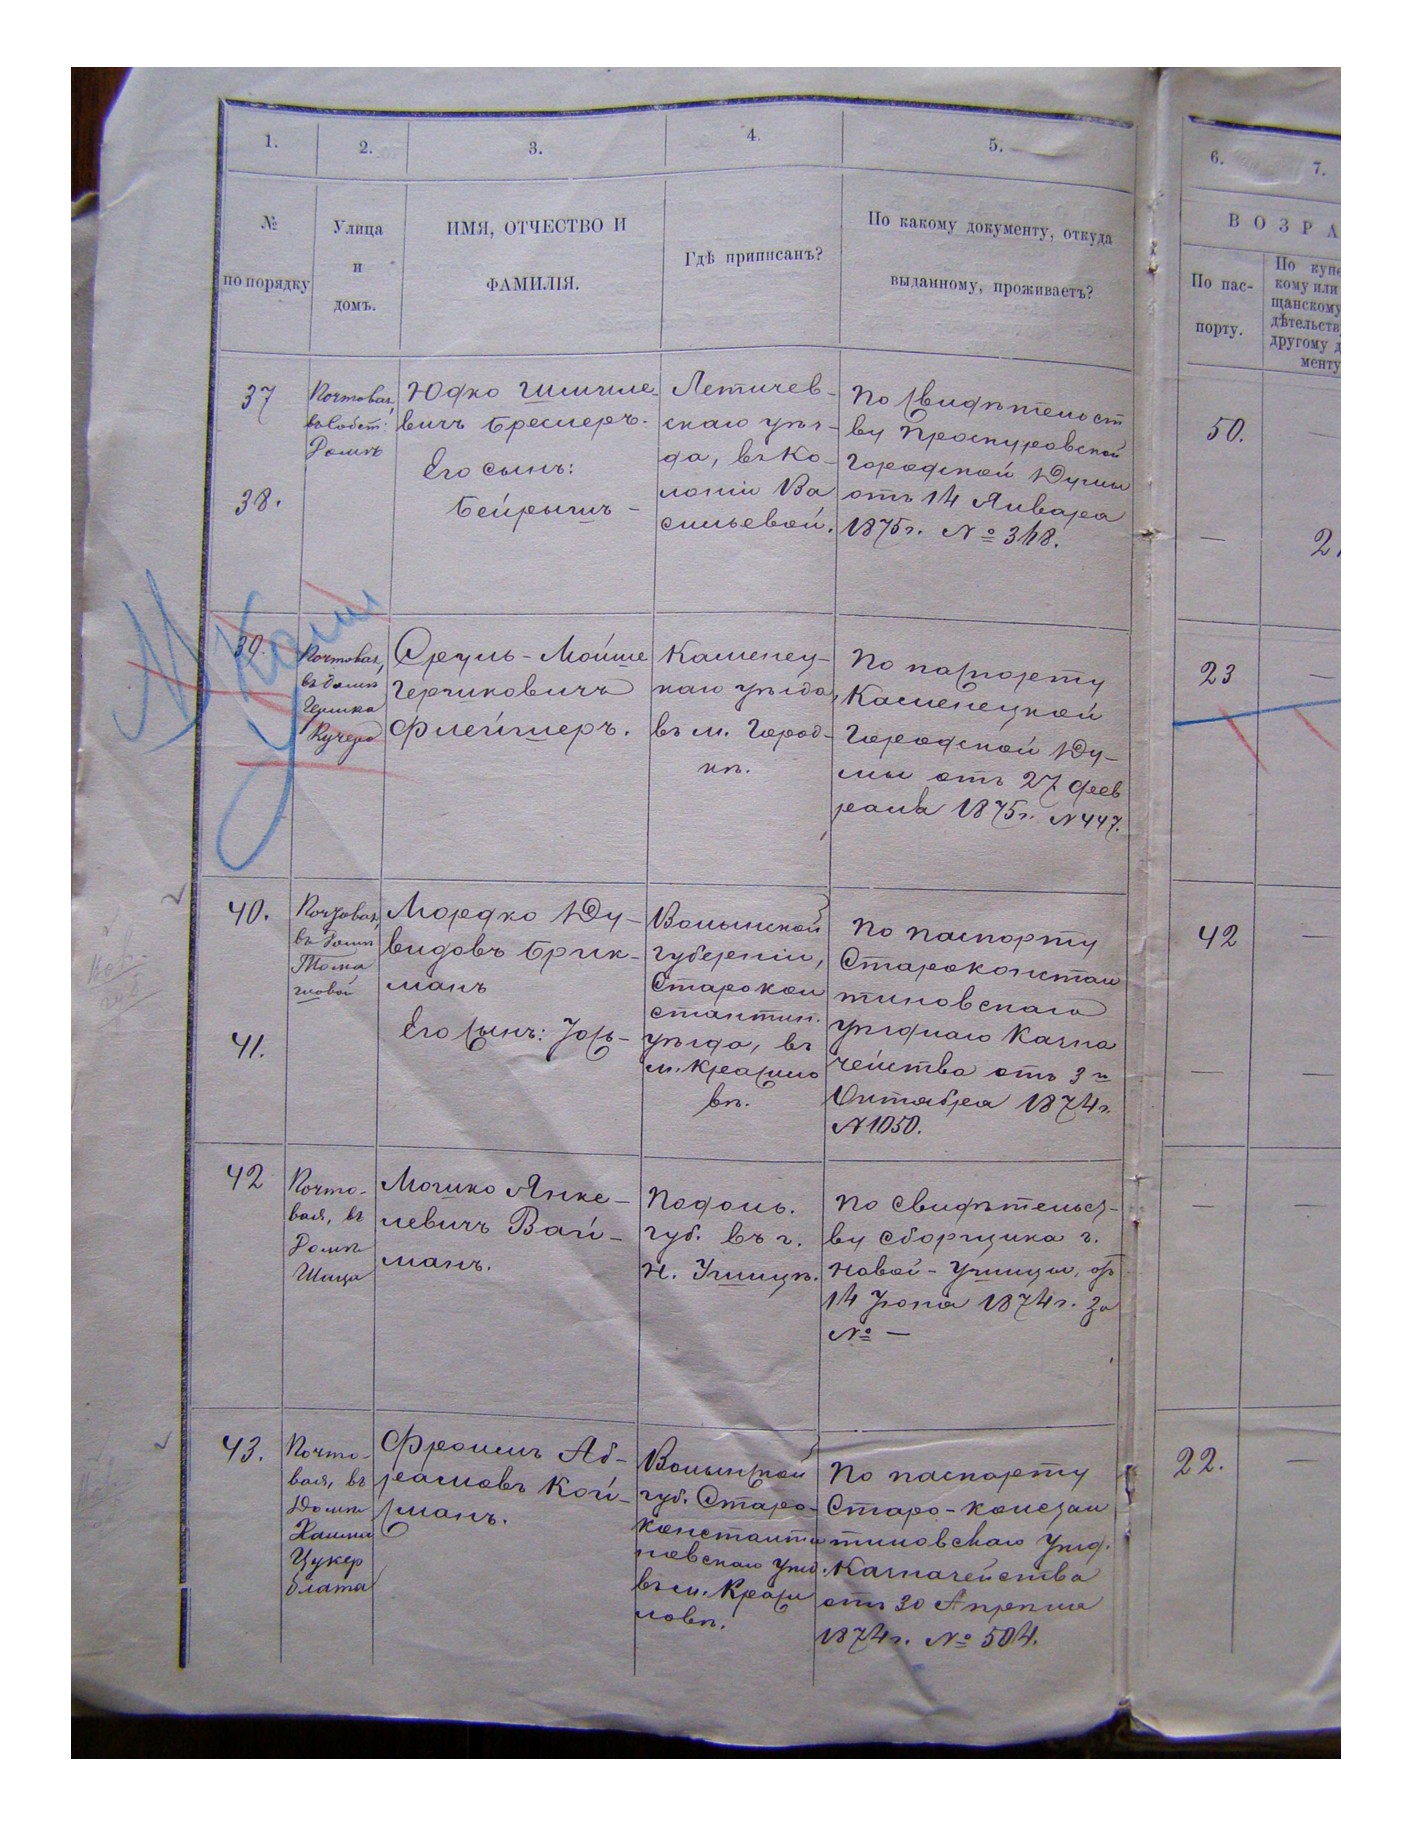 1.
2.
3.
4.
5.
6.
7.
№
по порядку
Улица
и
домъ.
ИМЯ, ОТЧЕСТВО И
ФАМИЛІЯ.
Гдѣ приписанъ?
По какому документу, откуда
выданному, проживаетъ?
ВОЗРА
По пас-
порту.
По купе
кому или
щанскому
дѣтельств
другому д
менту
37
Почтовая,
въ собст:
Домѣ
Юдко
вичъ Бреслеръ.
38.
Его сынъ:
Бейрышъ -
Летичев-
скаго уѣз-
да, въ Ко-
лоніи Ва
сильевой.
По свидѣтельст
ву Проскуровской
Городской Думы
отъ 14 Января
1875г. № 318.
50.
—
—
39.
Почтовая,
въ домѣ
Гершка
Кучера
Сруль - Мойше
Гершковичъ
Флейшеръ.
Каменец-
каго уѣзда,
въ м. Город-
кѣ.
По паспорту
Каменецкой
Городской Ду-
мы отъ 27 фев
раля 1875г. №447.
23
—
40.
Почтовая,
въ Домѣ
Мордко Ду-
видовъ Брик-
манъ
41.
Его сынъ: Іось-
Волынской
губерніи,
Старокон
стантин.
уѣзда, въ
м. Красило
вѣ.
По паспорту
Староконстан
тиновскаго
уѣзднаго Казна
чейства отъ 3го
Октября 1874г.
№1050.
42
—
—
—
42
Почто-
вая, въ
Домѣ
Мошко Янке-
левичъ Вай-
манъ.
Подоль.
губ. въ г.
Н. Ушицѣ.
По свидѣтельст-
ву сборщика г.
Новой - Ушицы, отъ
14 Іюня 1874г. за
№ —
—
—
43.
Почто-
вая, въ
Домѣ
Хаима
Цукер
блата
Фроимъ Аб-
рамовъ Кой
манъ.
Волынской
губ. Старо-
константи
новскаго уѣзд.
въ м. Краси
ловѣ.
По паспорту
Старо-констан
тиновскаго уѣзд.
Казначейства
отъ 30 Апрѣля
1874г. № 504.
22.
—